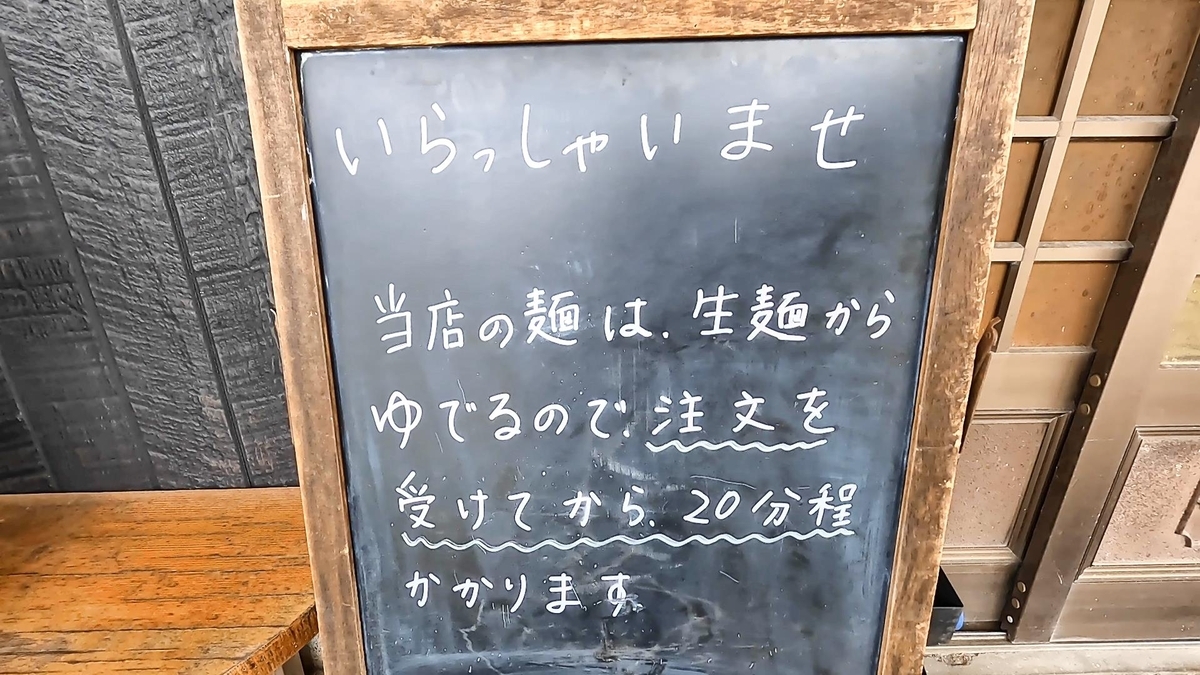 いらっしゃいませ
当店の麺は、生麺から
ゆでるので、注文を
受けてから、20分程
かかります。